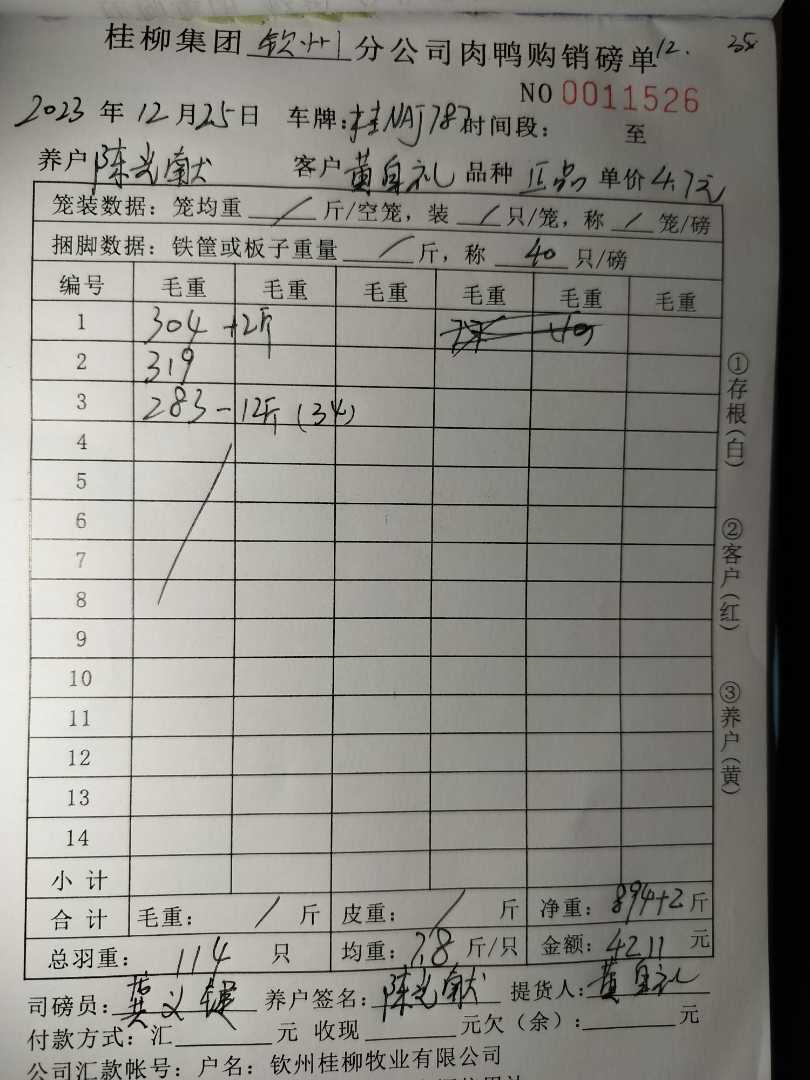 桂柳集团 钦州 分公司肉鸭购销磅单 12. 35
NO 0011526
2023 年 12 月 25 日 车牌:桂NAJ787 时间段: 至
养户 陈光献 客户 黄自礼 品种 正品 单价 4.7元
笼装数据: 笼均重 / 斤/空笼, 装 / 只/笼, 称 / 笼/磅
捆脚数据: 铁筐或板子重量 / 斤, 称 40 只/磅
编号 毛重 毛重 毛重 毛重 毛重 毛重
1 304 +2斤
2 319
3 283 - 12斤 (34)
4
5
6
7
8
9
10
11
12
13
14
小 计
合 计 毛重: / 斤 皮重: / 斤 净重: 894+2 斤
总羽重: 114 只 均重: 7.8 斤/只 金额: 4211 元
司磅员: 黄义健 养户签名: 陈光献 提货人: 黄自礼
付款方式: 汇 元 收现 元欠(余): 元
公司汇款帐号: 户名: 钦州桂柳牧业有限公司
①存根(白)
②客户(红)
③养户(黄)